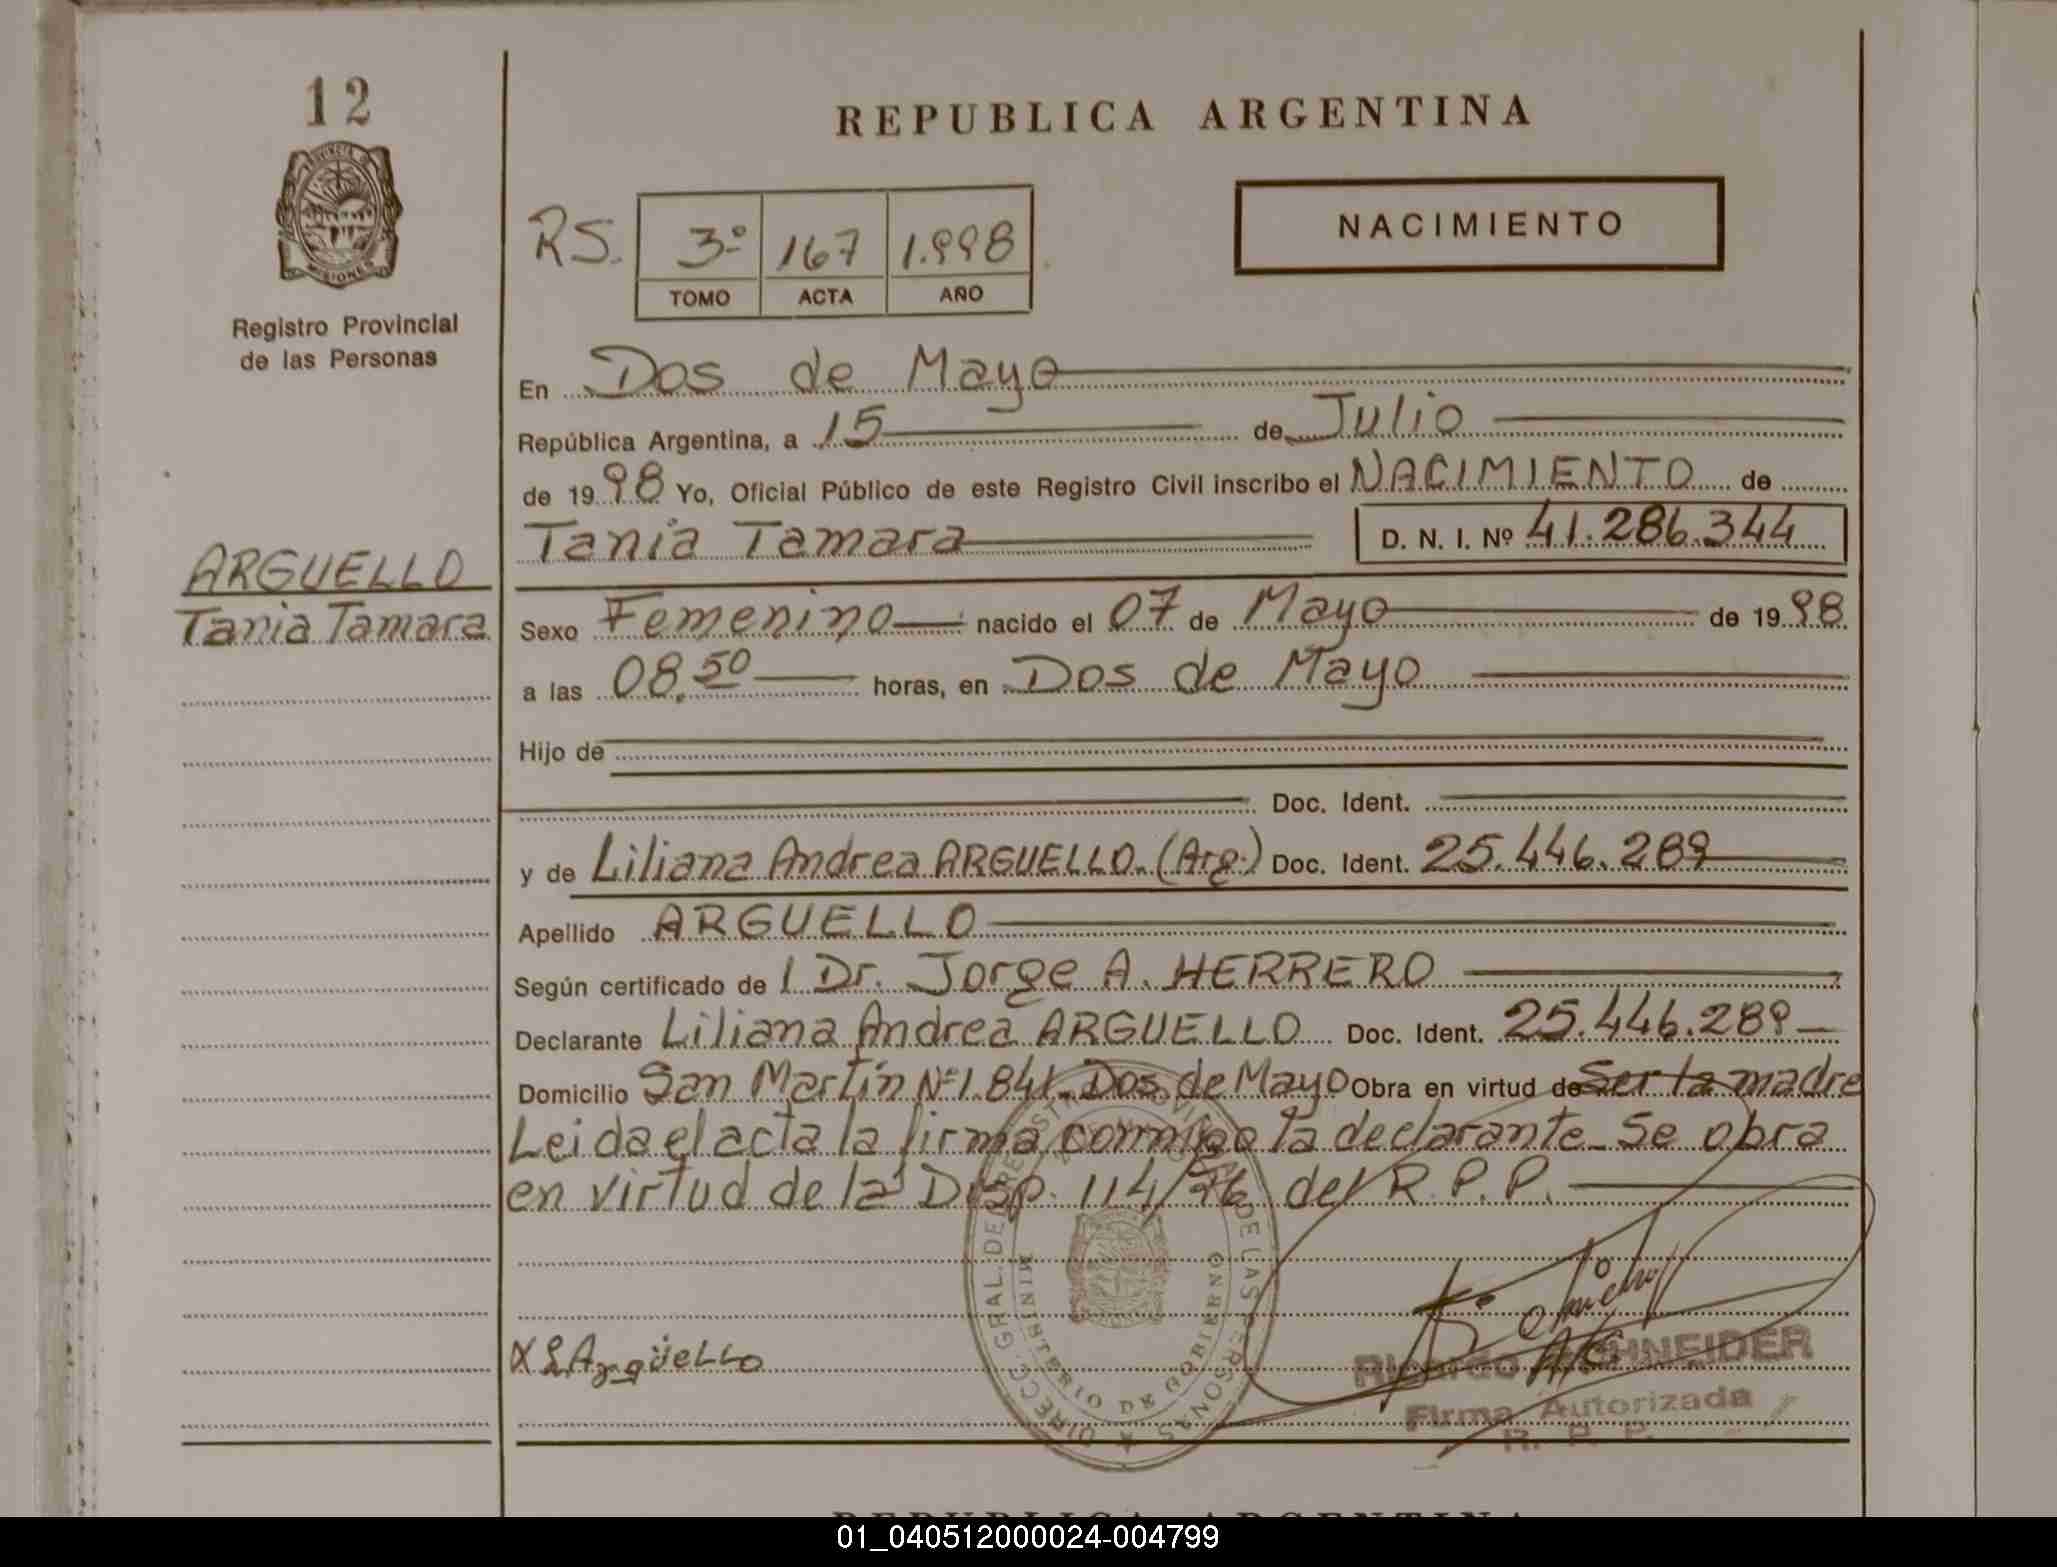 12
PROVINCIA DE
MISIONES
Registro Provincial
de las Personas
ARGUELLO
Tania Tamara
REPUBLICA ARGENTINA
NACIMIENTO
RS. 3º 167 1.998
TOMO ACTA AÑO
En Dos de Mayo
República Argentina, a 15 de Julio
de 1998 Yo, Oficial Público de este Registro Civil inscribo el NACIMIENTO de
Tania Tamara D. N. I. Nº 41.286.344
Sexo Femenino nacido el 07 de Mayo de 1998
a las 08.50 horas, en Dos de Mayo
Hijo de
Doc. Ident.
y de Liliana Andrea ARGUELLO. (Arg.) Doc. Ident. 25.446.289
Apellido ARGUELLO
Según certificado de l Dr. Jorge A. HERRERO
Declarante Liliana Andrea ARGUELLO Doc. Ident. 25.446.289
Domicilio San Martín Nº 1.841. Dos de Mayo Obra en virtud de Ser la madre
Leida el acta la firma conmigo la declarante. Se obra
en virtud de la Disp. 114/96 del R.P.P.
X L.A. Argüello
MINISTERIO DE GOBIERNO
Ricardo SCHNEIDER
Firma Autorizada
R. P. P.
REPUBLICA ARGENTINA
01_040512000024-004799